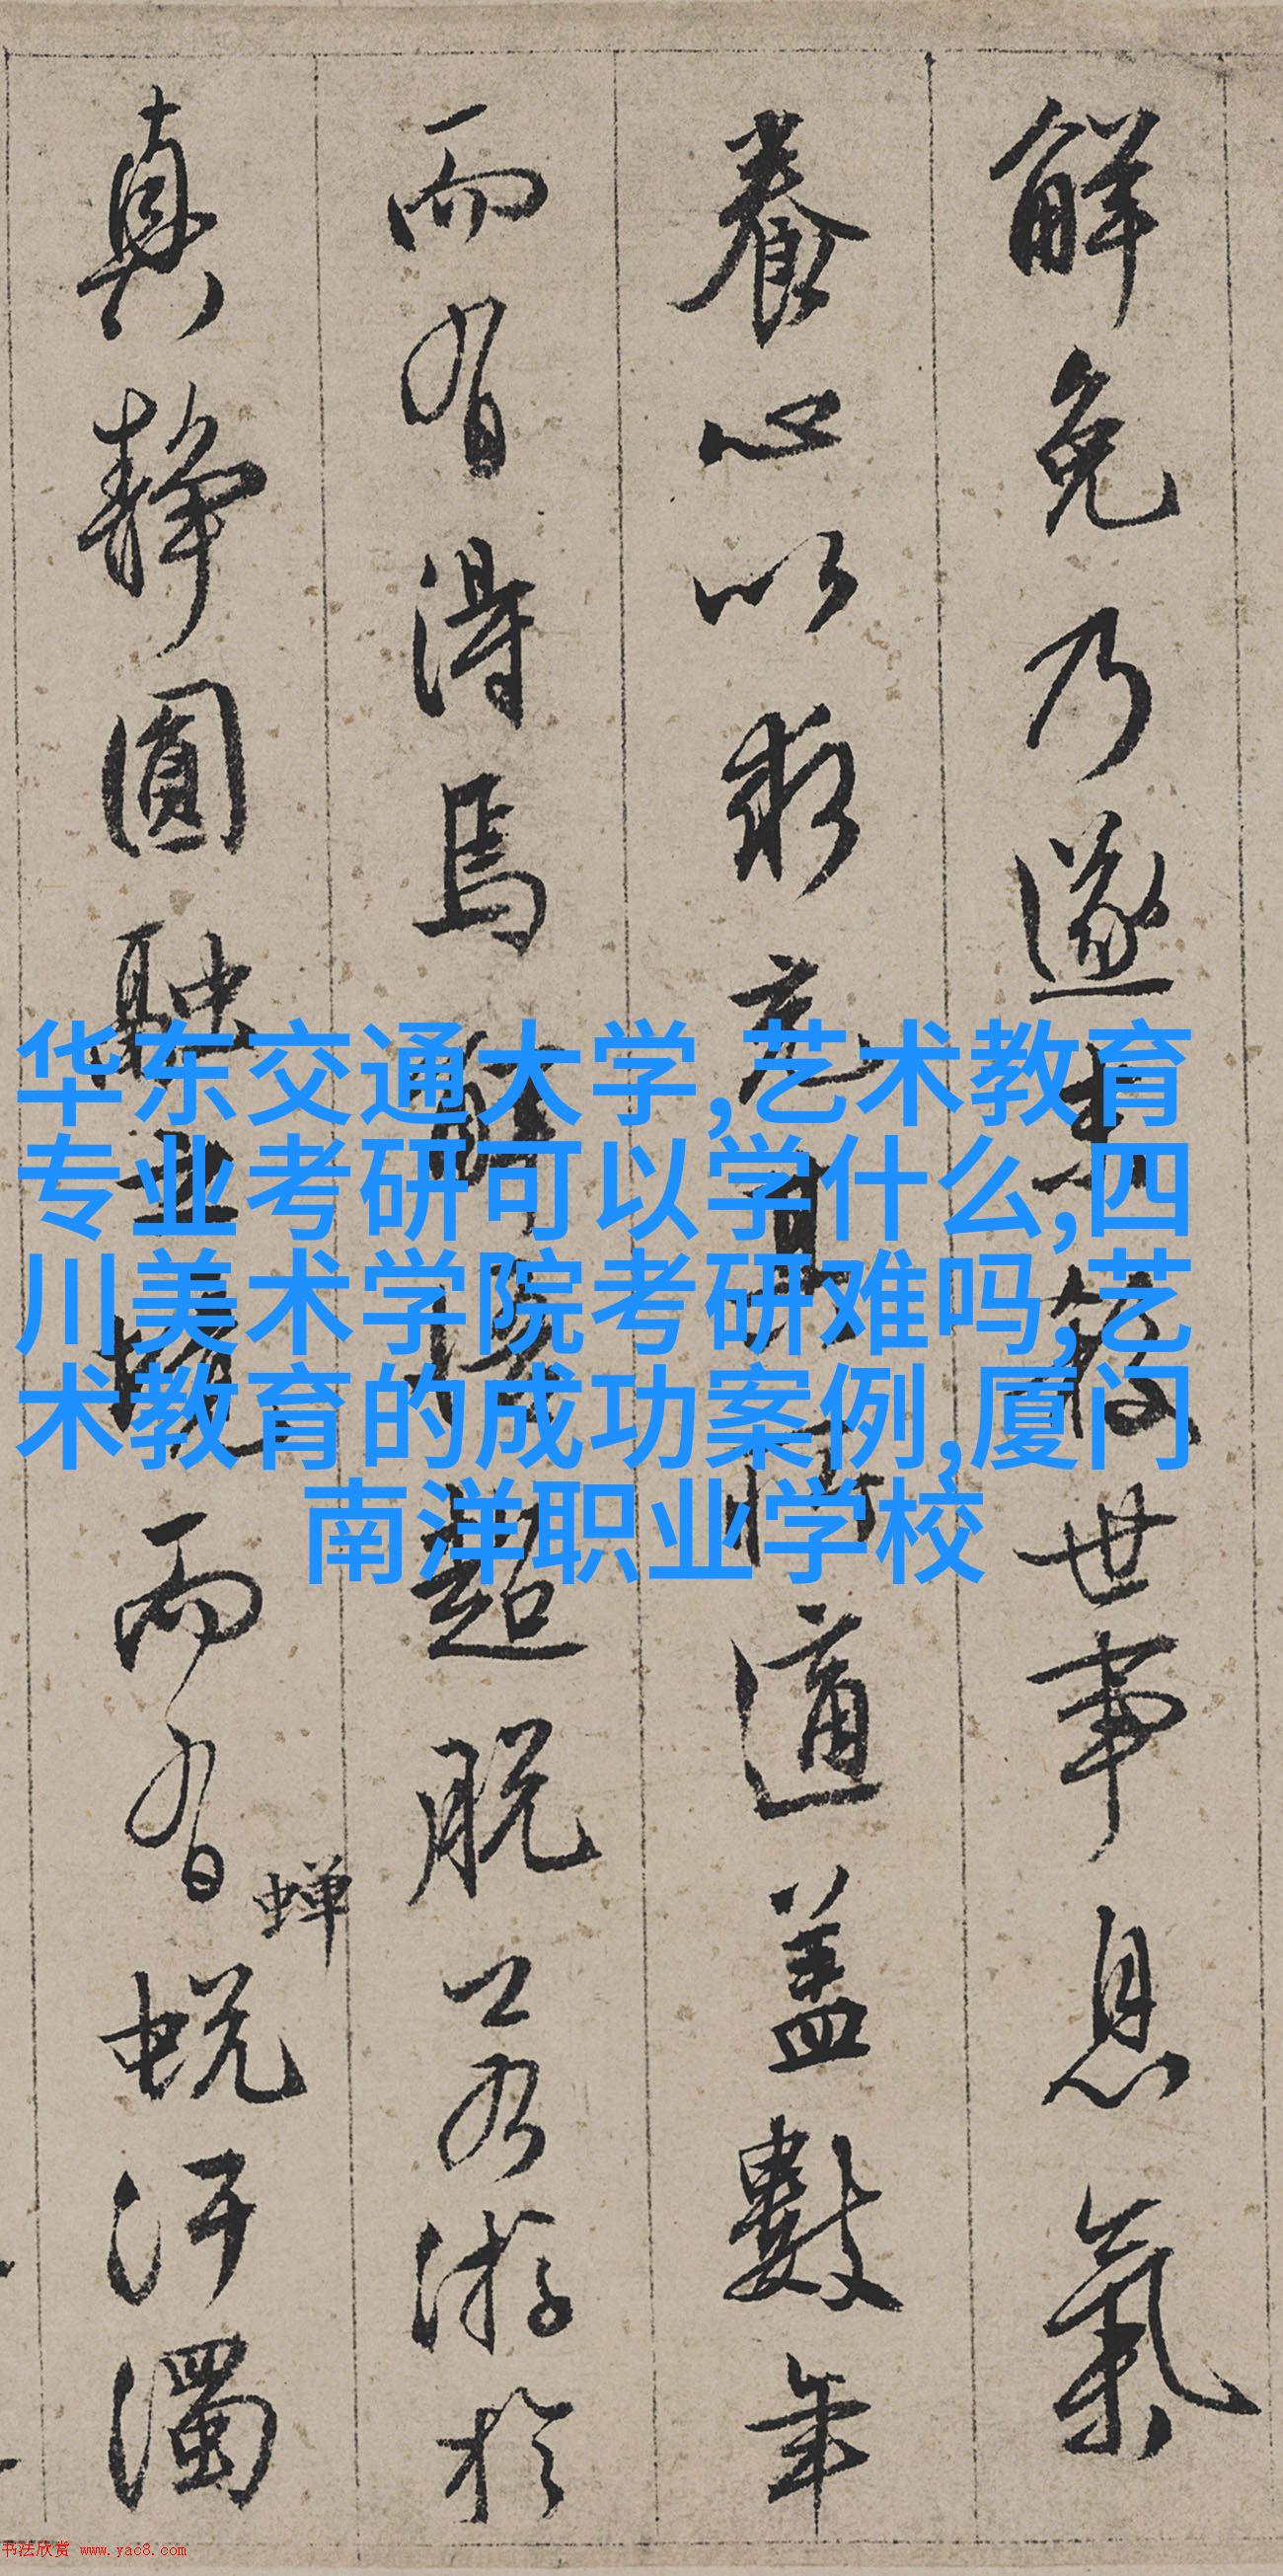 解免乃遂世事息氣
養心以求適蓋數年
而有得焉超脱游於
真静圓融之境而有蟬蜕汙濁
华东交通大学,艺术教育
专业考研可以学什么,四
川美术学院考研难吗,艺
术教育的成功案例,厦门
南洋职业学校
书法欣赏 www.yac8.com